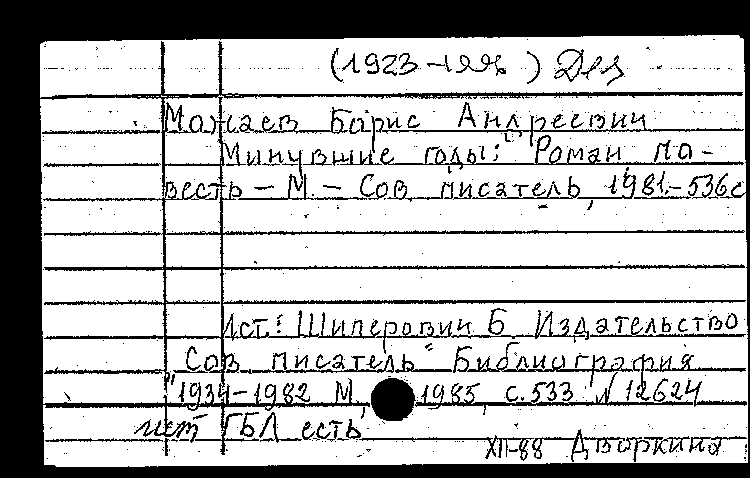 (1923-1996) Дез
Можаев Борис Андреевич
Минувшие годы: Роман, по-
весть - М. - Сов. писатель, 1981.-536с
Ист: Шиперович Б. Издательство
"Сов. писатель" Библиография
1934-1982 М., 1985, с.533 N 12624
ГБЛ есть
XII-88 Дворкина